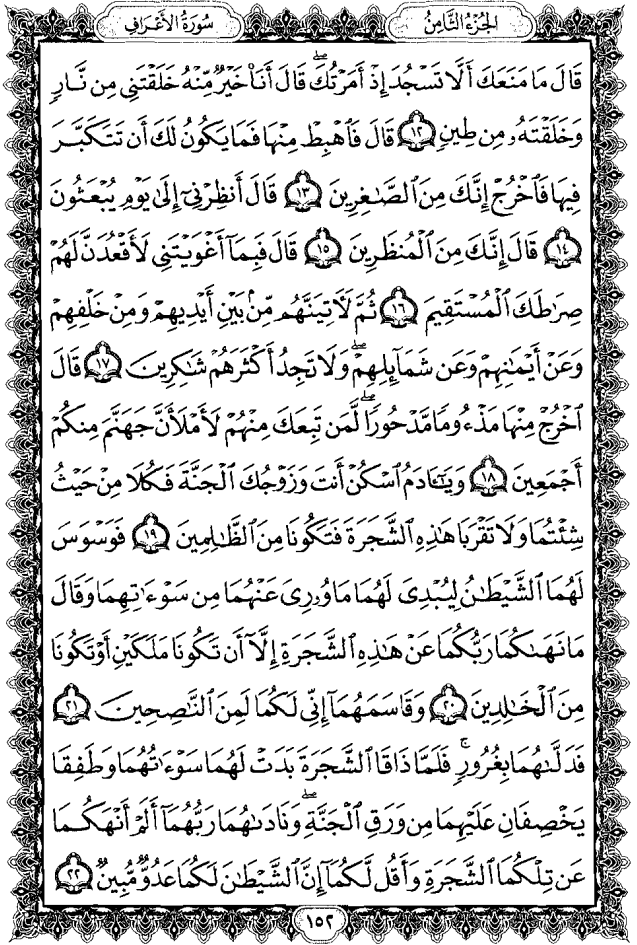 الجُزْءُ الثَّامِنُ
سُورَةُ الأَعْرَافِ
قَالَ مَا مَنَعَكَ أَلَّا تَسْجُدَ إِذْ أَمَرْتُكَ ۖ قَالَ أَنَا۠ خَيْرٌ مِّنْهُ خَلَقْتَنِى مِن نَّارٍ
وَخَلَقْتَهُۥ مِن طِينٍ ١٢ قَالَ فَٱهْبِطْ مِنْهَا فَمَا يَكُونُ لَكَ أَن تَتَكَبَّرَ
فِيهَا فَٱخْرُجْ إِنَّكَ مِنَ ٱلصَّـٰغِرِينَ ١٣ قَالَ أَنظِرْنِىٓ إِلَىٰ يَوْمِ يُبْعَثُونَ
١٤ قَالَ إِنَّكَ مِنَ ٱلْمُنظَرِينَ ١٥ قَالَ فَبِمَآ أَغْوَيْتَنِى لَأَقْعُدَنَّ لَهُمْ
صِرَٰطَكَ ٱلْمُسْتَقِيمَ ١٦ ثُمَّ لَـَٔاتِيَنَّهُم مِّنۢ بَيْنِ أَيْدِيهِمْ وَمِنْ خَلْفِهِمْ
وَعَنْ أَيْمَـٰنِهِمْ وَعَن شَمَآئِلِهِمْ ۖ وَلَا تَجِدُ أَكْثَرَهُمْ شَـٰكِرِينَ ١٧ قَالَ
ٱخْرُجْ مِنْهَا مَذْءُومًا مَّدْحُورًا ۖ لَّمَن تَبِعَكَ مِنْهُمْ لَأَمْلَأَنَّ جَهَنَّمَ مِنكُمْ
أَجْمَعِينَ ١٨ وَيَـٰٓـَٔادَمُ ٱسْكُنْ أَنتَ وَزَوْجُكَ ٱلْجَنَّةَ فَكُلَا مِنْ حَيْثُ
شِئْتُمَا وَلَا تَقْرَبَا هَـٰذِهِ ٱلشَّجَرَةَ فَتَكُونَا مِنَ ٱلظَّـٰلِمِينَ ١٩ فَوَسْوَسَ
لَهُمَا ٱلشَّيْطَـٰنُ لِيُبْدِىَ لَهُمَا مَا وُۥرِىَ عَنْهُمَا مِن سَوْءَٰتِهِمَا وَقَالَ
مَا نَهَىٰكُمَا رَبُّكُمَا عَنْ هَـٰذِهِ ٱلشَّجَرَةِ إِلَّآ أَن تَكُونَا مَلَكَيْنِ أَوْ تَكُونَا
مِنَ ٱلْخَـٰلِدِينَ ٢٠ وَقَاسَمَهُمَآ إِنِّى لَكُمَا لَمِنَ ٱلنَّـٰصِحِينَ ٢١
فَدَلَّىٰهُمَا بِغُرُورٍ ۚ فَلَمَّا ذَاقَا ٱلشَّجَرَةَ بَدَتْ لَهُمَا سَوْءَٰتُهُمَا وَطَفِقَا
يَخْصِفَانِ عَلَيْهِمَا مِن وَرَقِ ٱلْجَنَّةِ ۖ وَنَادَىٰهُمَا رَبُّهُمَآ أَلَمْ أَنْهَكُمَا
عَن تِلْكُمَا ٱلشَّجَرَةِ وَأَقُل لَّكُمَآ إِنَّ ٱلشَّيْطَـٰنَ لَكُمَا عَدُوٌّ مُّبِينٌ ٢٢
١٥٢